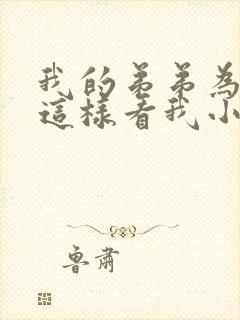 我的弟弟為
這樣看我小
魯肅